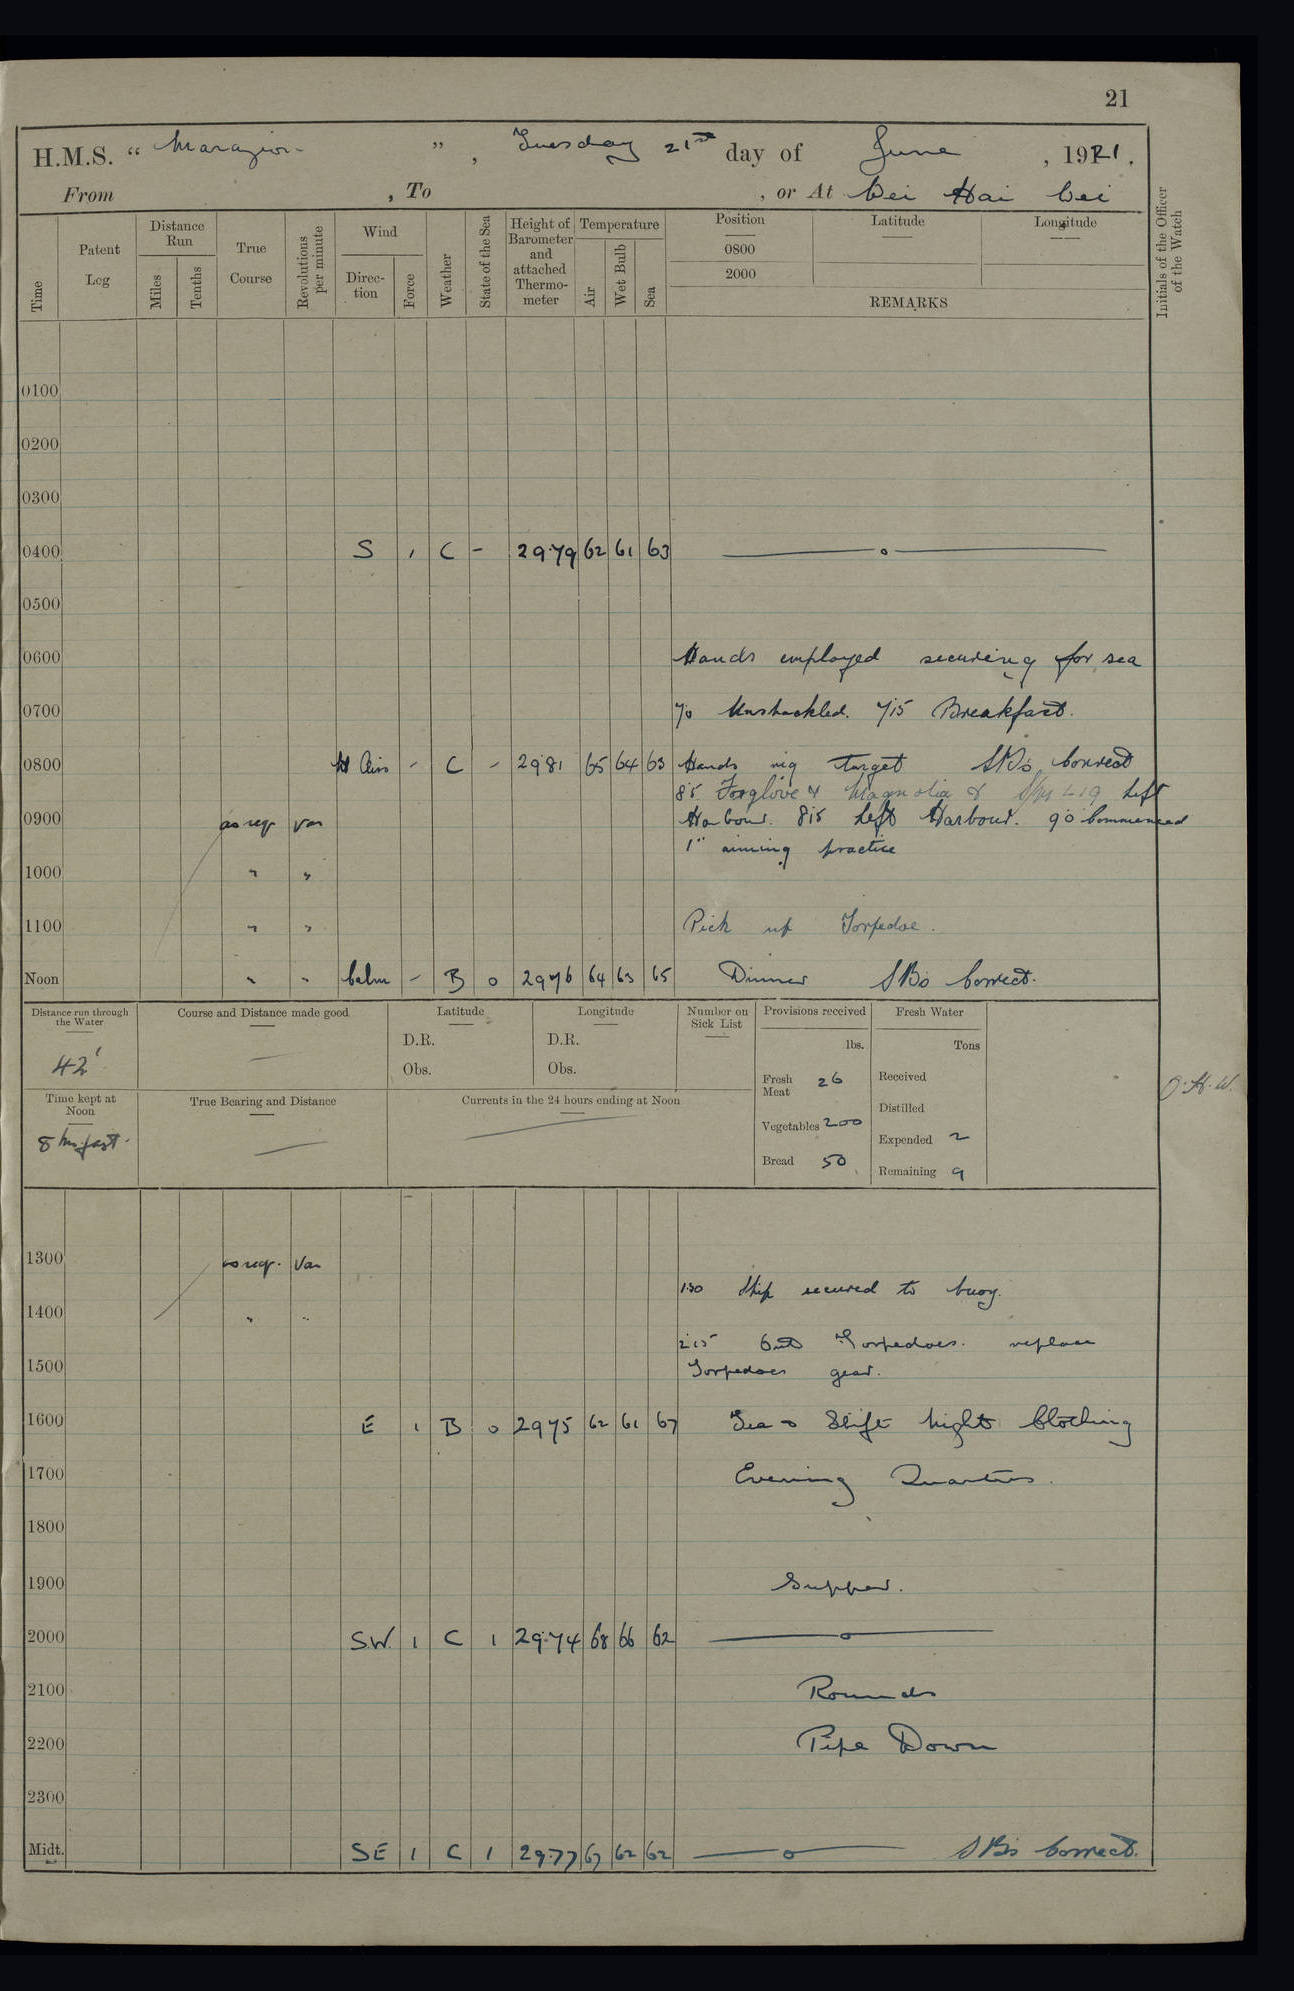 21
H.M.S. “ Marazion ” , Tuesday 21st day of June , 1921 .
From , To , or At Wei Hai Wei
Time Patent Log Distance Run Miles Tenths True Course Revolutions per minute Wind Direction Force Weather State of the Sea Height of Barometer and attached Thermometer Temperature Air Wet Bulb Sea Position 0800 2000 Latitude Longitude REMARKS Initials of the Officer of the Watch
0100
0200
0300
0400 S 1 C - 29.79 62 61 63
0500
0600 Hands employed securing for sea
0700 7.0 Unshackled. 7.15 Breakfast.
0800 Lt Airs - C - 29.81 65 64 63 Hands rig target SBs Correct
8.5 Foxglove & Magnolia & S/M L19 Left
0900 as req Var Harbour. 8.15 Left Harbour. 9.0 Commenced
1" aiming practice
1000 " "
1100 " " Pick up Torpedoe.
Noon " " Calm - B 0 29.76 64 63 65 Dinner SBs Correct.
Distance run through the Water Course and Distance made good Latitude Longitude Number on Sick List Provisions received Fresh Water
42' — D.R. D.R. lbs. Tons
Obs. Obs. Fresh Meat 26 Received
O.H.W.
Time kept at Noon True Bearing and Distance Currents in the 24 hours ending at Noon Distilled
8 hrs fast. — Vegetables 200 Expended 2
Bread 50 Remaining 9
1300 as req. Var
1.30 Ship secured to buoy.
1400 " "
2.15 Torpedoes. replace
1500 Torpedoes gear.
1600 E 1 B 0 29.75 62 61 67 Tea & Shift Night Clothing
1700 Evening Quarters.
1800
1900 Supper.
2000 S.W. 1 C 1 29.74 68 66 62
2100 Rounds
2200 Pipe Down
2300
Midt. SE 1 C 1 29.77 67 62 62 SBs Correct.